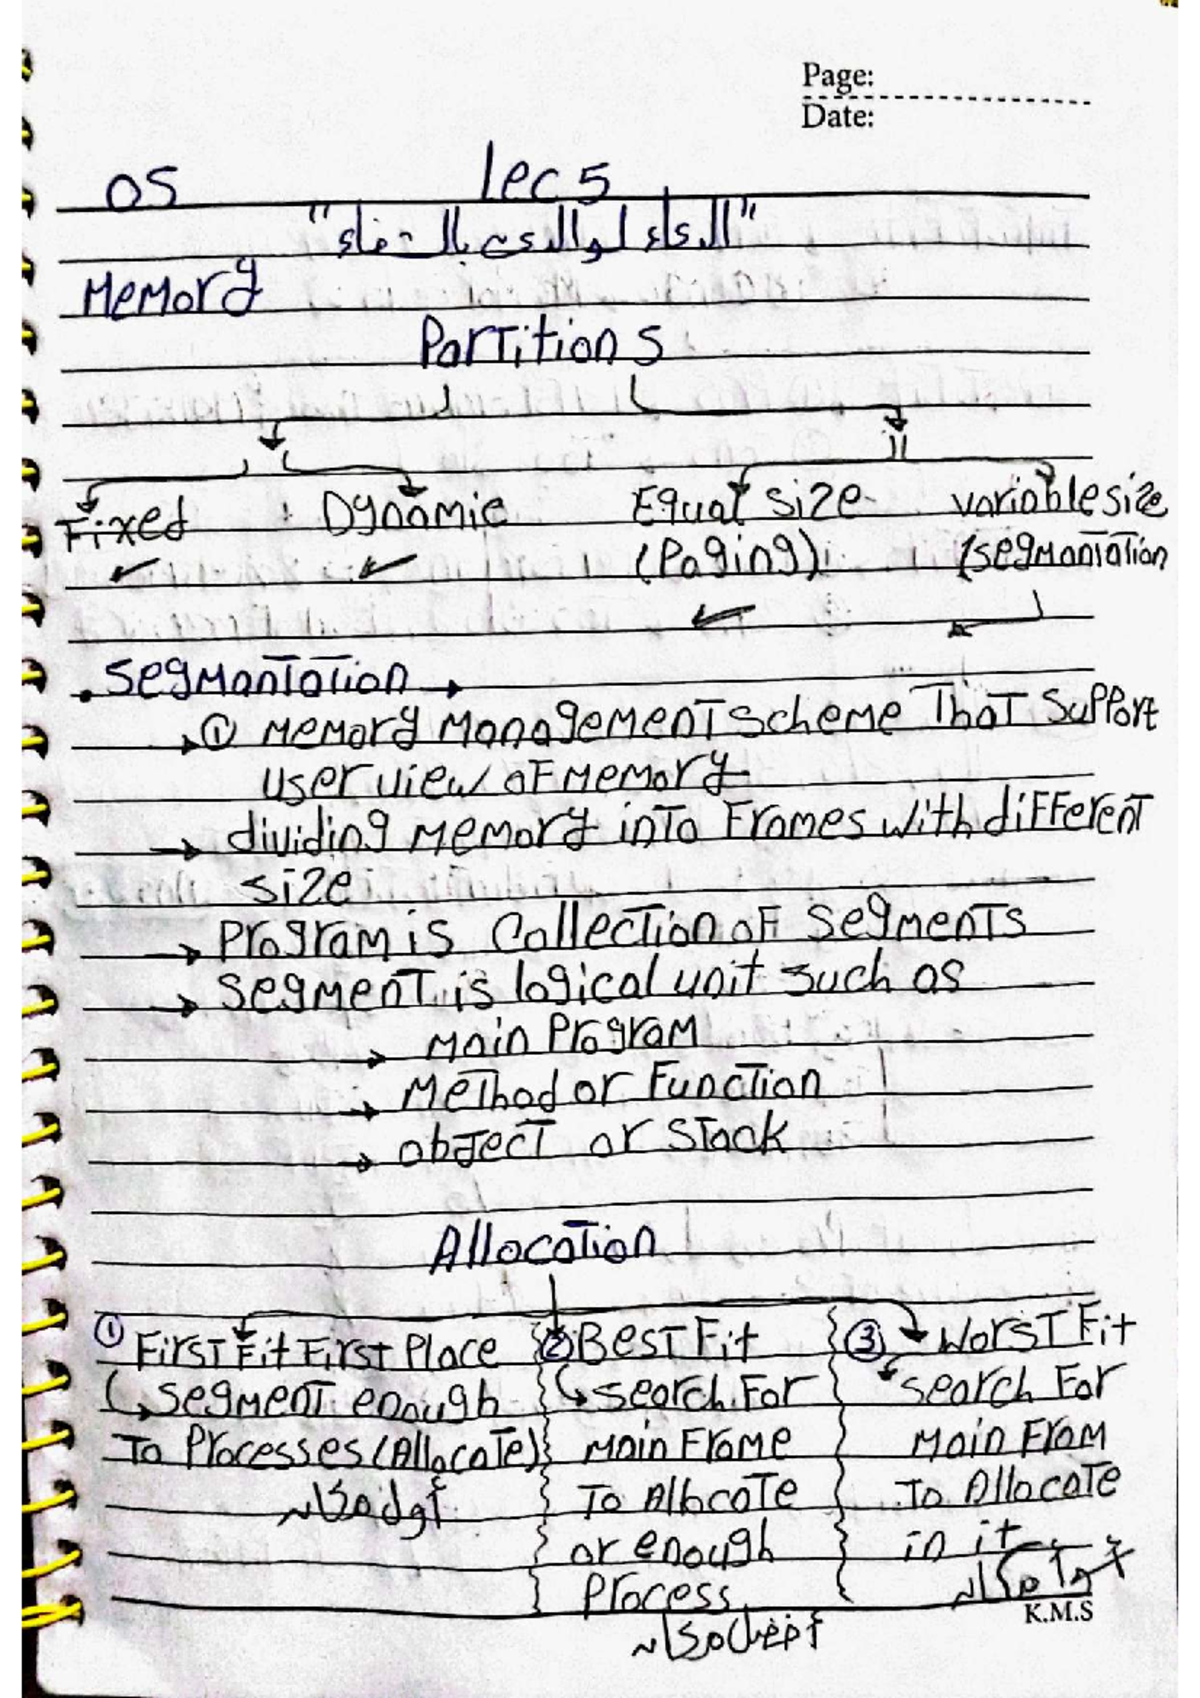 Page:
Date:
OS Lec 5
"الدعاء لوالدى بالشفاء"
Memory
Partitions
Fixed Dynamic Equal size variable size
(Paging) (segmantation
. segmantation →
→ ① memory management scheme That support
user view of memory
→ dividing memory into Frames with different
size
→ Program is Collection of segments
→ segment is logical unit such as
→ main Program
→ Method or Function
→ object or stack
Allocation
① First Fit First Place
segment enough
To Processes (Allocate)
② Best Fit
search For
main Frame
To Allocate
or enough
Process
③ Worst Fit
search For
main Fram
To Allocate
in it
K.M.S